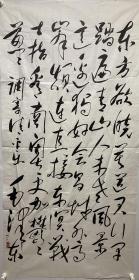 东方欲晓莫道君行早
踏遍青山人未老风景
这边独好会昌城外高
峰颠连直接东溟战
士指看南粤更加郁々
葱々 调寄清平乐 毛泽东